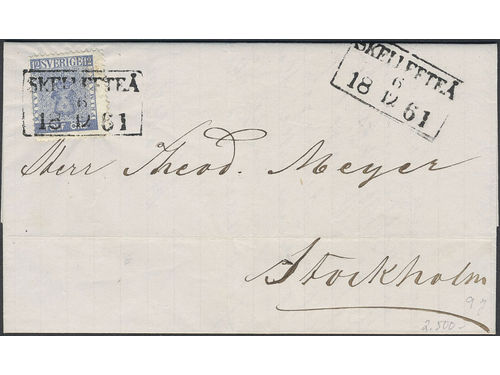 SVERIGE
SKELLEFTEÅ
6
18 12 61
SKELLEFTEÅ
6
18 12 61
Herr Theod. Meyer
Stockholm
2.500-